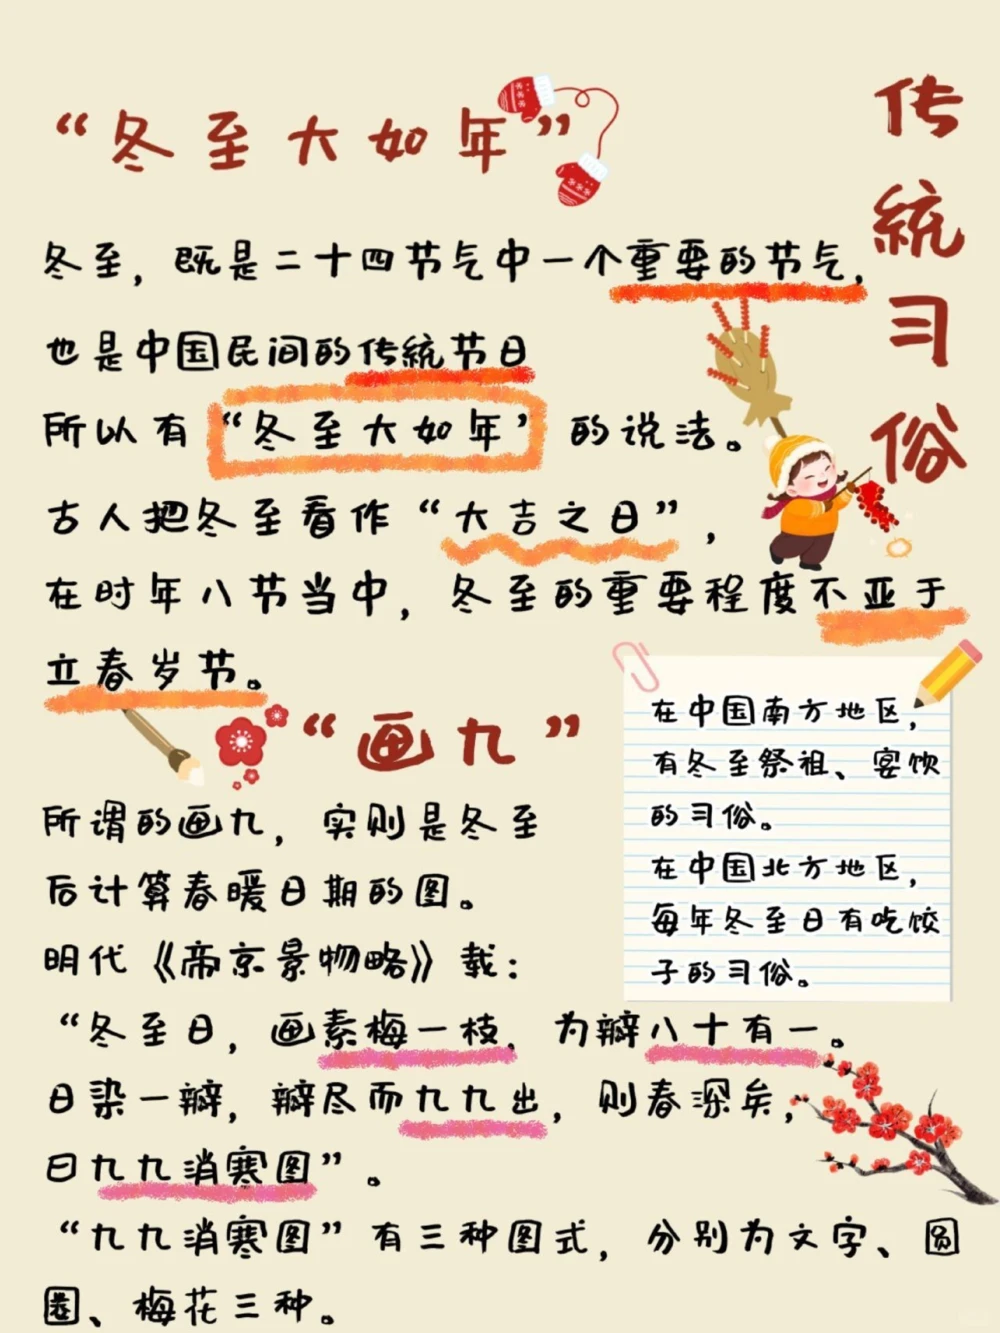 “冬至大如年”
传统习俗
冬至，既是二十四节气中一个重要的节气，
也是中国民间的传统节日
所以有“冬至大如年’的说法。
古人把冬至看作“大吉之日”，
在时年八节当中，冬至的重要程度不亚于
立春岁节。
“画九”
所谓的画九，实则是冬至
后计算春暖日期的图。
明代《帝京景物略》载：
“冬至日，画素梅一枝，为瓣八十有一。
日染一瓣，瓣尽而九九出，则春深矣，
曰九九消寒图”。
“九九消寒图”有三种图式，分别为文字、圆
圈、梅花三种。
在中国南方地区，
有冬至祭祖、宴饮
的习俗。
在中国北方地区，
每年冬至日有吃饺
子的习俗。